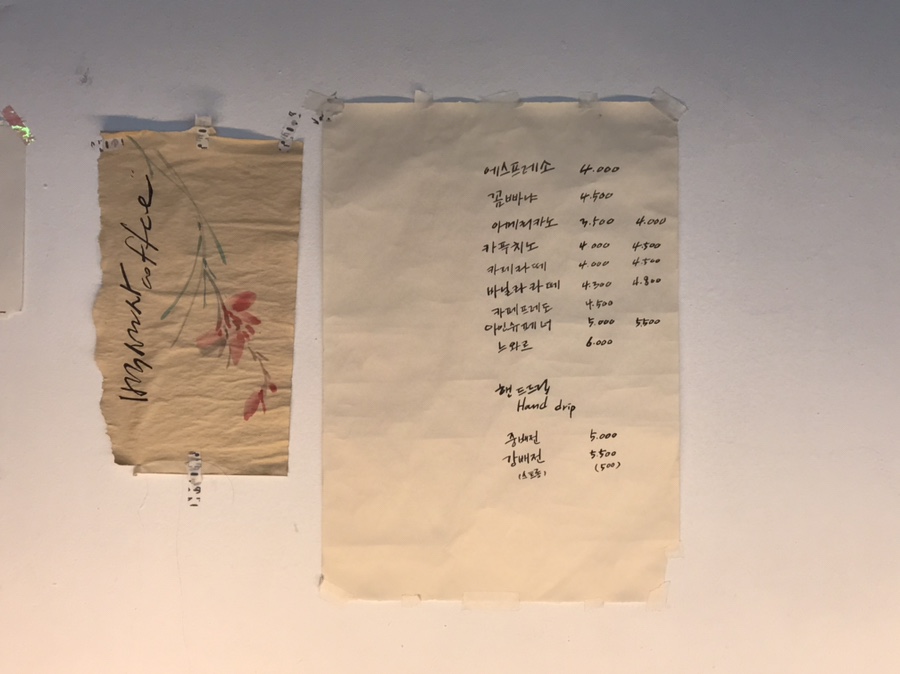 coffee
에스프레소 4.000
꼼빠냐 4.500
아메리카노 3.500 4.000
카푸치노 4.000 4.500
카페라떼 4.000 4.500
바닐라라떼 4.300 4.800
카페프레도 4.500
아인슈페너 5.000 5500
느와르 6.000
핸드드립
Hand drip
중배전 5.000
강배전 5.500
(500)